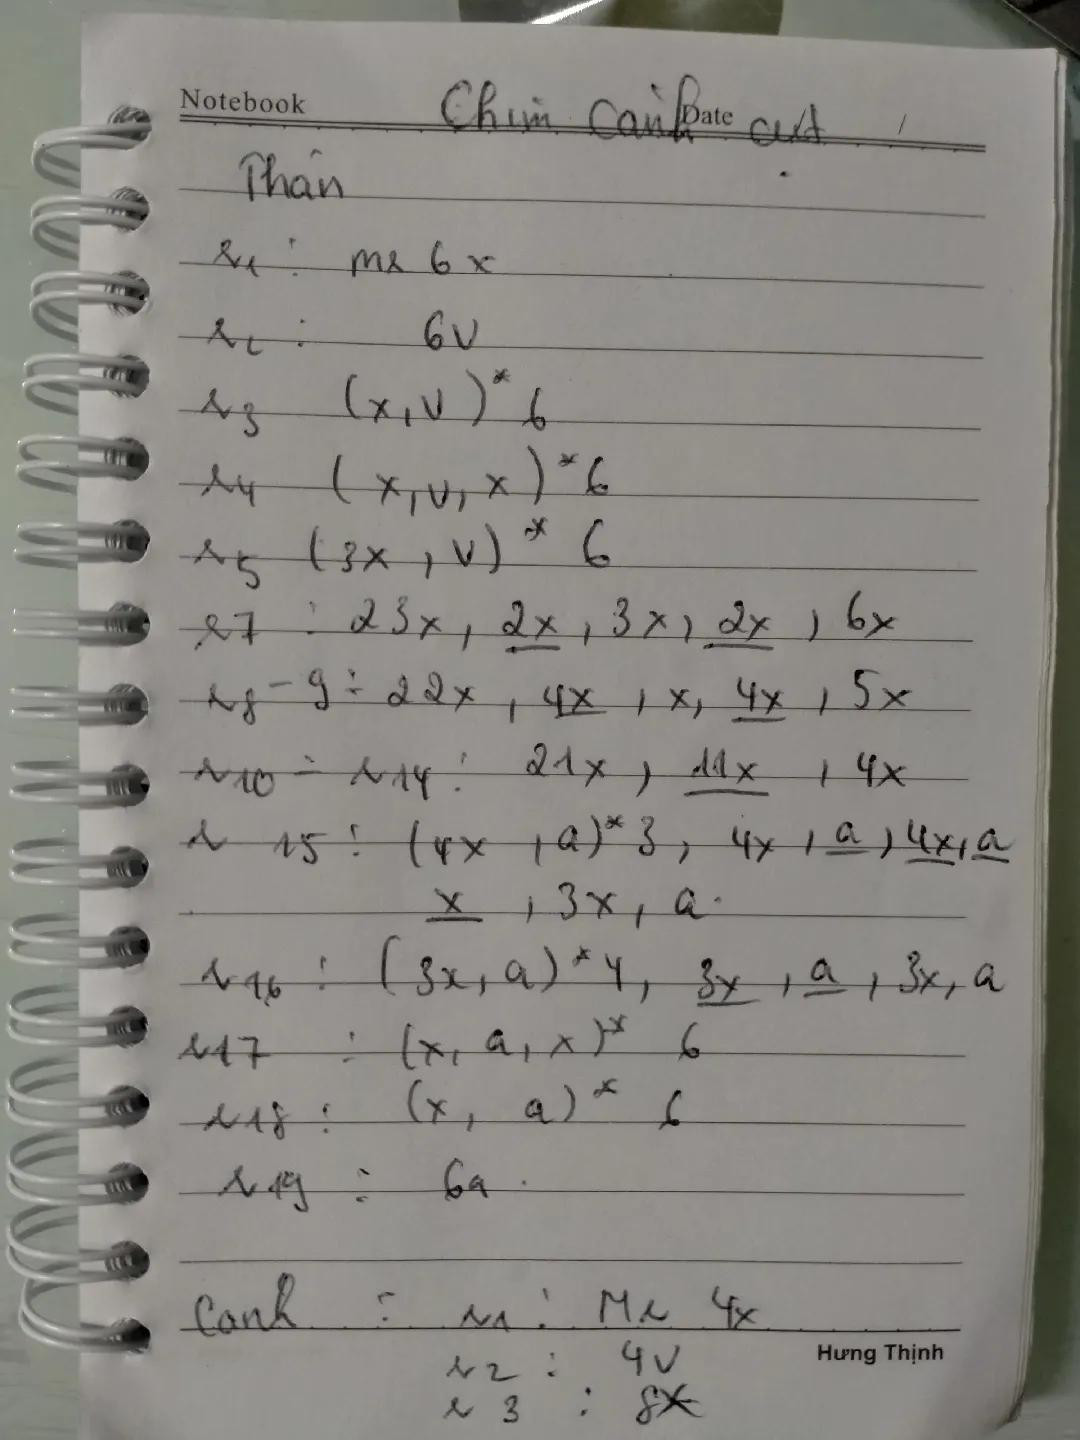 Notebook Date
Chim cánh cụt
Thân
r1 : mr 6x
r2 : 6V
r3 (x, V)* 6
r4 (x, v, x)* 6
r5 (3x, V)* 6
r7 : 23x, 2x, 3x, 2x, 6x
r8-9 : 22x, 4x, x, 4x, 5x
r10 - r14 : 21x, 11x, 4x
r 15 : (4x, a)* 3, 4x, a, 4x, a
x, 3x, a.
r16 : (3x, a)* 4, 3x, a, 3x, a
r17 : (x, a, x)* 6
r18 : (x, a)* 6
r19 : 6a.
Canh : r1 : Mr 4x
Hưng Thịnh
r2 : 4V
r3 : 8x